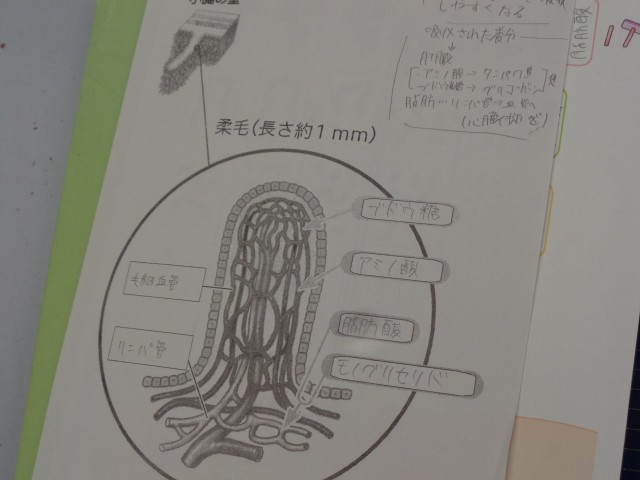 小腸の壁
柔毛(長さ約1mm)
ブドウ糖
アミノ酸
脂肪酸
モノグリセリド
毛細血管
リンパ管
しやすくなる
吸収された養分
肝臓
アミノ酸→タンパク質
ブドウ糖→グリコーゲン
脂肪…リンパ管→血管へ
脂肪酸